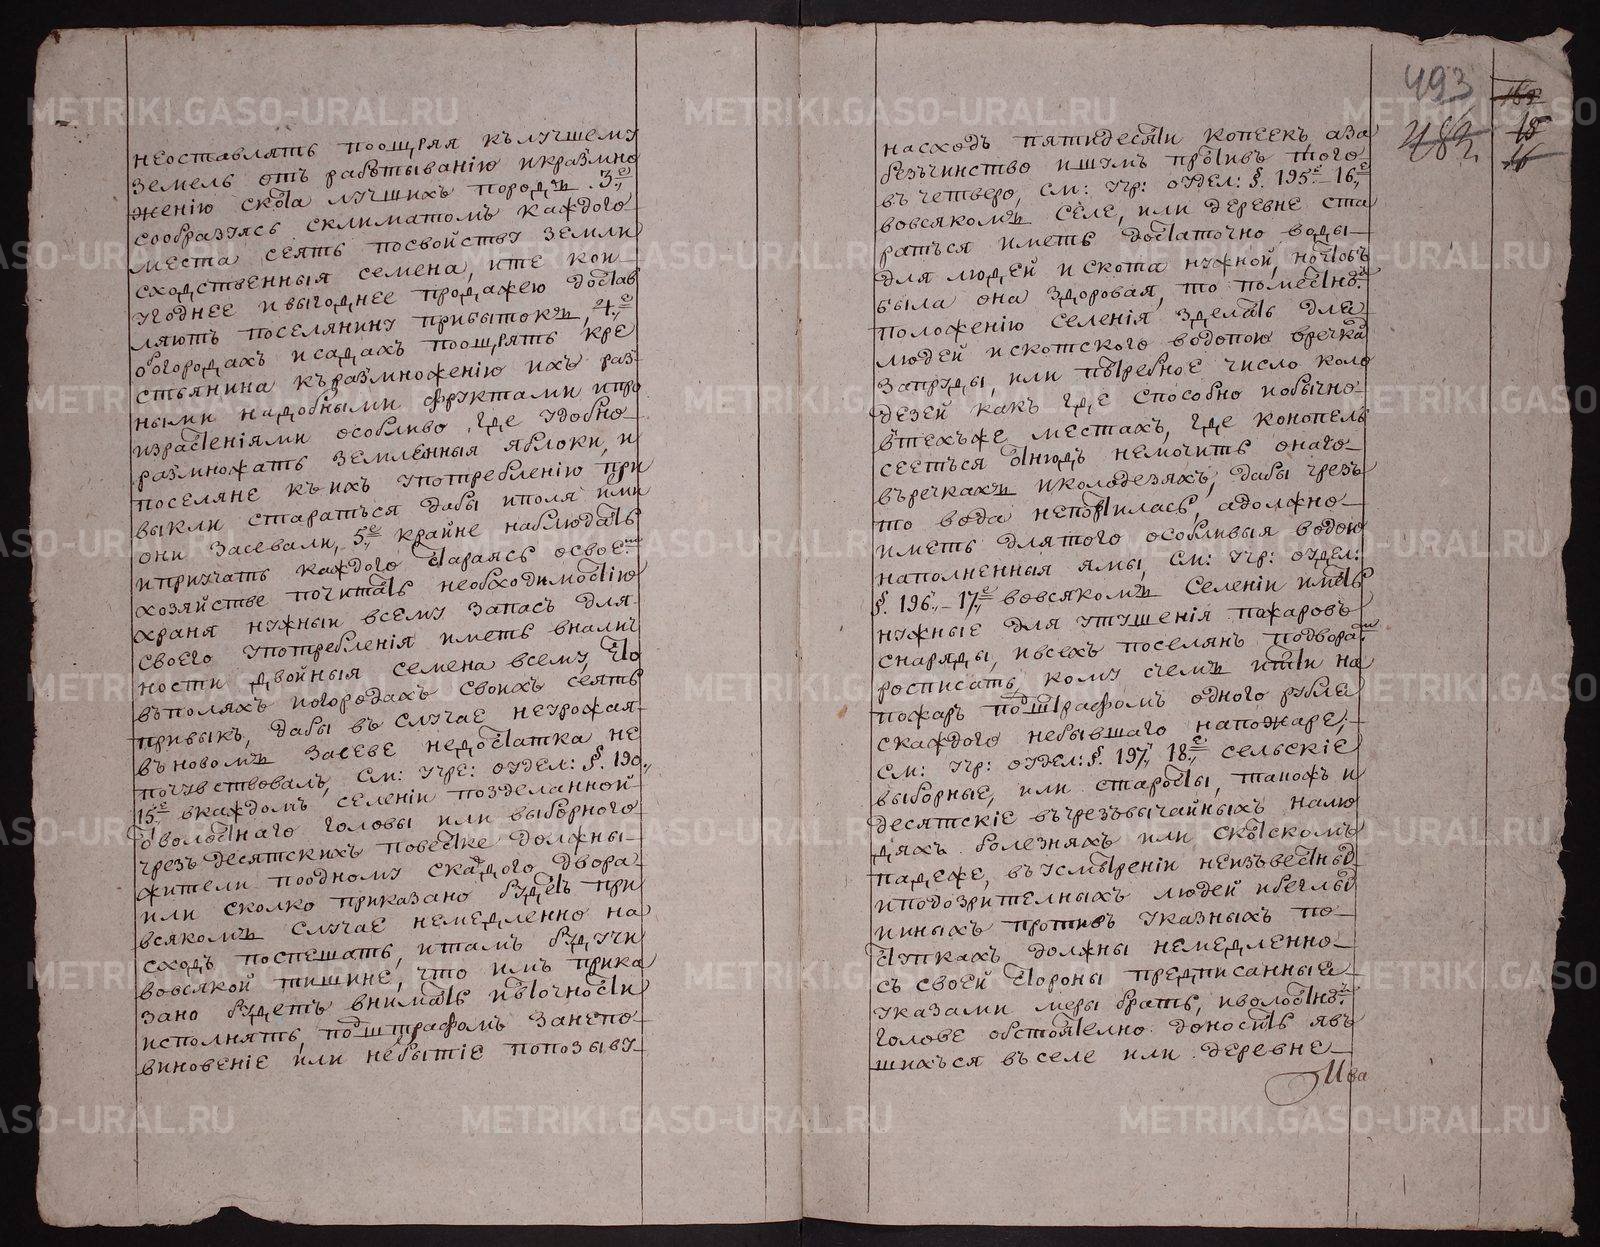 неоставлять поощряя кълучшему
земель отъ работыванію икразмно
женію скота лучшихъ породъ, 3,е
сообразуясь склиматомъ каждого
места сеять посвойству земли
сходственныя семена, ите кои
угоднее ивыгоднее продажею достав
ляютъ поселянину прибытокъ, 4,е
обогородахъ исадахъ поощрять кре
стьянина къразмноженію ихъ раз
ными надобными фруктами ипро
израстеніями особливо где удобно
размножать земленныя яблоки, и
поселяне къихъ употребленію при
выкли стараться дабы иполя ими
они засевали, 5,е крайне наблюдать
иприучать каждого стараясь освоемъ
хозяйстве почитать необходимостію
храня нужный всему запасъ для
своего употребленія иметь вналич
ности двойныя семена всему, что
въполяхъ иогородахъ своихъ сеять
привыкъ, дабы въ случае неурожая
въновомъ засеве недостатка не
почувствовалъ, см: учре: отдел: §. 190.,
15,е вкаждомъ селеніи позделанной
отволостнаго головы или выборного
чрезъ десятскихъ повестке должны
жители поодному скаждого двора
или сколко приказано будетъ при
всякомъ случае немедленно на
сходъ поспешать, итамъ будучи
вовсякой тишине, что имъ прика
зано будетъ внимать ивточности
исполнять, подштрафомъ занепо
виновеніе или небытіе попозыву
493
482
169
15
16
насходъ пятидесяти копеекъ аза
безъчинство ишумъ противъ того
въ четверо, см: учр: отдел: §. 195,е 16,е
вовсякомъ селе, или деревне ста
раться иметь достаточно воды
для людей искота нужной, ночтобъ
была она здоровая, то поместной
положенію селенія зделать для
людей искотского водопою вречкахъ
запруды, или потребное число коло
дезей какъ где способно иобычно
втехъже местахъ, где конопель
сееться отнюдь немочить онаго
въречкахъ иколодезяхъ, дабы чрезъ
то вода непортилась, адолжно
иметь длятого особливыя водою
наполненныя ямы, см: учр: отдел:
§. 196,, 17,е вовсякомъ селеніи иметь
нужные для утушенія пожаровъ
снаряды, ивсехъ поселянъ подворамъ
росписать, кому счемъ итти на
пожаръ подштрафомъ одного рубля
скаждого небывшаго напожаре,
см: учр: отдел: §. 197, 18,е сельскіе
выборные, или старосты, такожъ и
десятскіе въчрезъвычайныхъ налю
дяхъ болезняхъ или скотскомъ
падеже, въусмотреніи неизъвестныхъ
иподозрителныхъ людей ибеглыхъ
ииныхъ противъ указныхъ по
ступкахъ должны немедленно
съ своей стороны предписанные
указами меры брать, иволостной
голове обстоятелно доносить явъ
шихъся въ селе или деревне
Ива